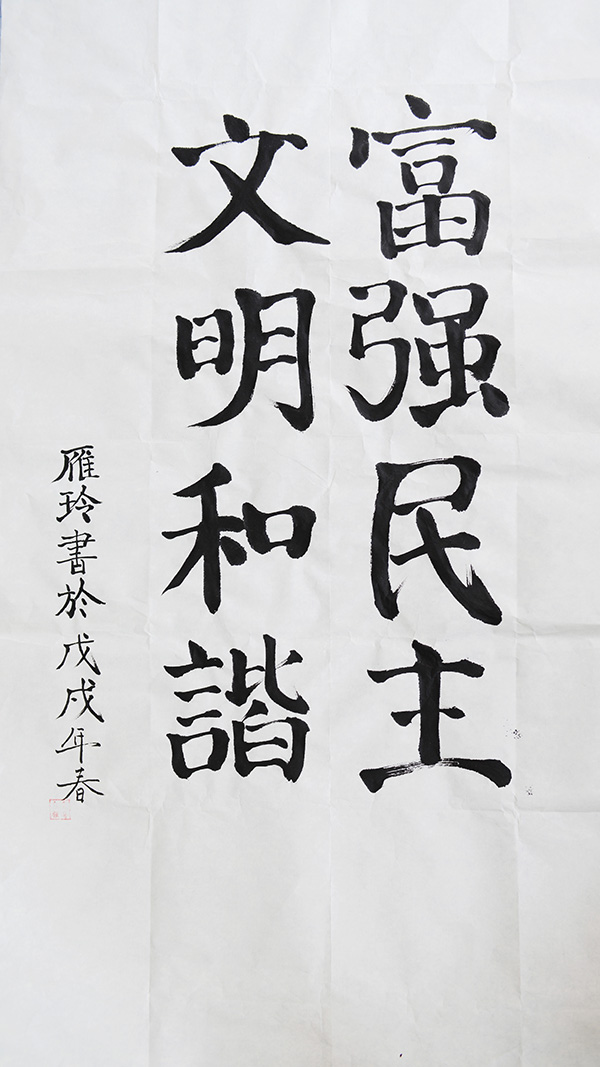 富强民主
文明和諧
雁玲書於戊戌年春